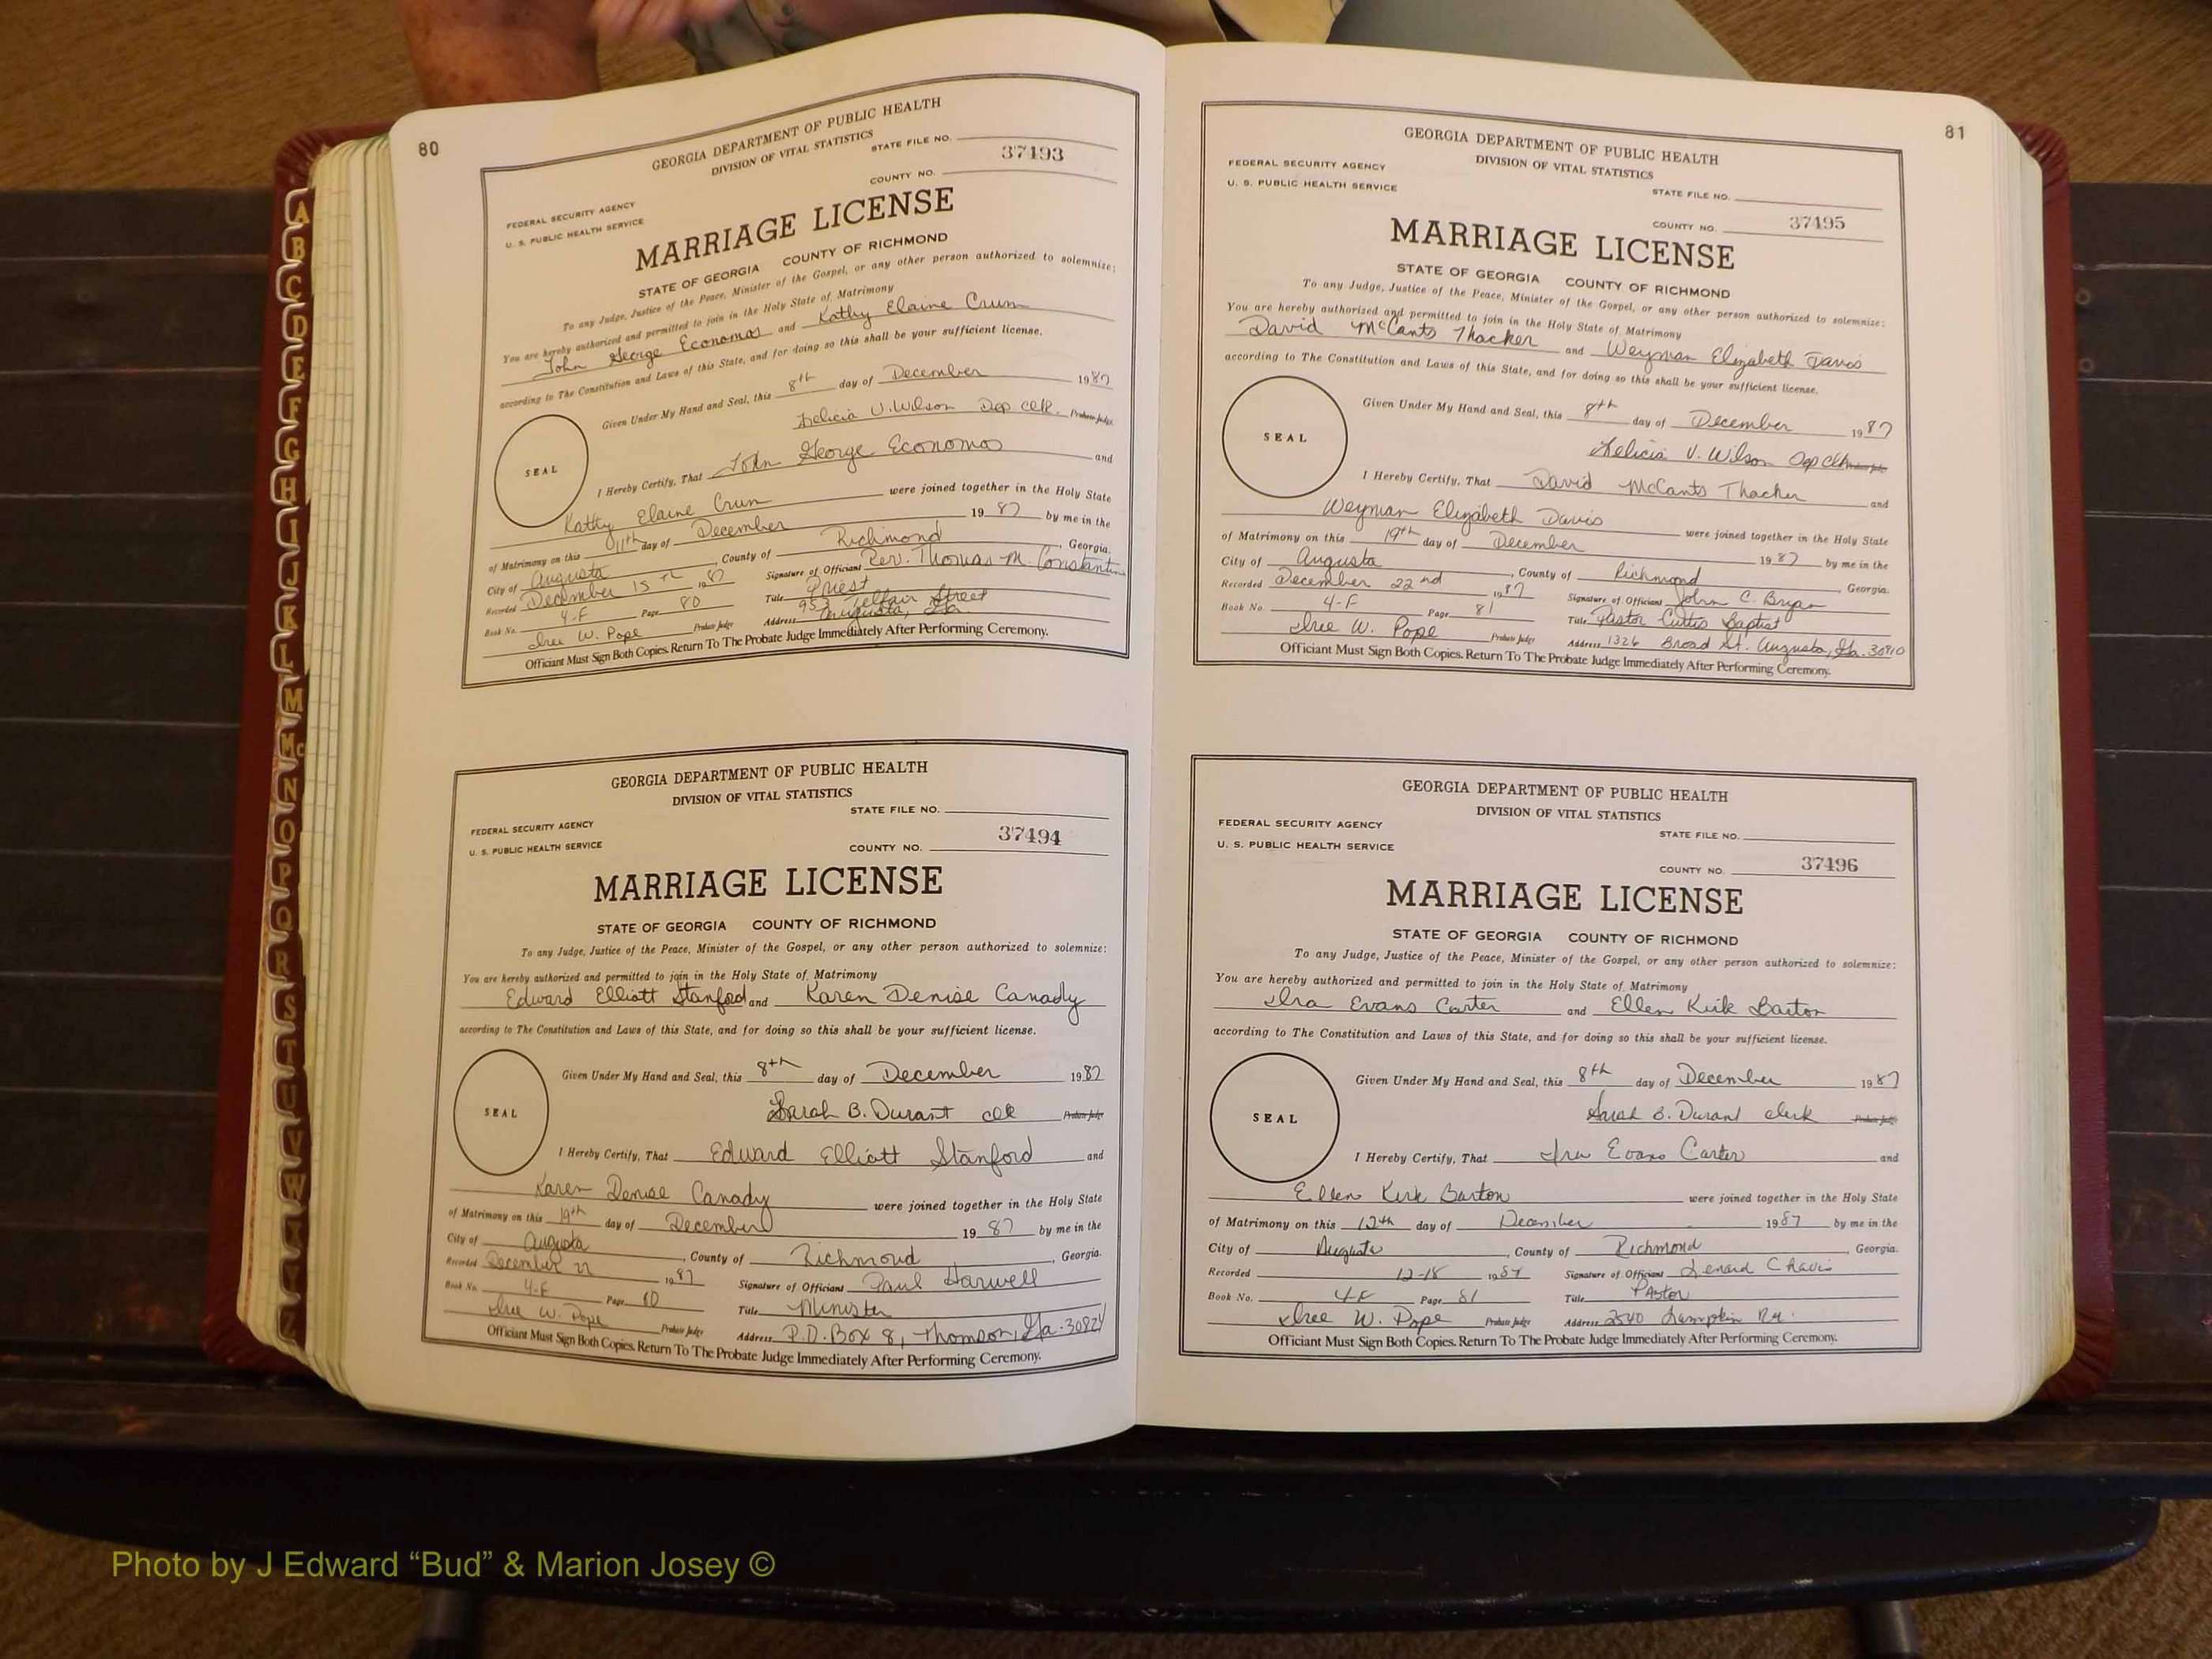 80
GEORGIA DEPARTMENT OF PUBLIC HEALTH
DIVISION OF VITAL STATISTICS
STATE FILE NO.
37493
COUNTY NO.
FEDERAL SECURITY AGENCY
U. S. PUBLIC HEALTH SERVICE
MARRIAGE LICENSE
STATE OF GEORGIA COUNTY OF RICHMOND
To any Judge, Justice of the Peace, Minister of the Gospel, or any other person authorized to solemnize:
You are hereby authorized and permitted to join in the Holy State of Matrimony
John George Economos and Kathy Elaine Crum
according to The Constitution and Laws of this State, and for doing so this shall be your sufficient license.
Given Under My Hand and Seal, this 8th day of December 1987
Felicia V. Wilson Dep Clk. Probate Judge
SEAL
I Hereby Certify, That John George Economos and
Kathy Elaine Crum were joined together in the Holy State
of Matrimony on this 11th day of December 1987 by me in the
City of Augusta, County of Richmond, Georgia.
Recorded December 15th 1987 Signature of Officiant Rev. Thomas M. Constantine
Book No. 4-F Page 80 Title Priest
Iree W. Pope Probate Judge Address 953 Telfair Street
Augusta, Ga.
Officiant Must Sign Both Copies. Return To The Probate Judge Immediately After Performing Ceremony.
GEORGIA DEPARTMENT OF PUBLIC HEALTH
DIVISION OF VITAL STATISTICS
STATE FILE NO.
FEDERAL SECURITY AGENCY
37494
U. S. PUBLIC HEALTH SERVICE
COUNTY NO.
MARRIAGE LICENSE
STATE OF GEORGIA COUNTY OF RICHMOND
To any Judge, Justice of the Peace, Minister of the Gospel, or any other person authorized to solemnize:
You are hereby authorized and permitted to join in the Holy State of Matrimony
Edward Elliott Stanford and Karen Denise Canady
according to The Constitution and Laws of this State, and for doing so this shall be your sufficient license.
Given Under My Hand and Seal, this 8th day of December 1987
Sarah B. Durant clk Probate Judge
SEAL
I Hereby Certify, That Edward Elliott Stanford and
Karen Denise Canady were joined together in the Holy State
of Matrimony on this 19th day of December 1987 by me in the
City of Augusta, County of Richmond, Georgia.
Recorded December 22 1987 Signature of Officiant Paul Harwell
Book No. 4-F Page 80 Title Minister
Iree W. Pope Probate Judge Address P.O. Box 8, Thomson, Ga. 30824
Officiant Must Sign Both Copies. Return To The Probate Judge Immediately After Performing Ceremony.
81
GEORGIA DEPARTMENT OF PUBLIC HEALTH
DIVISION OF VITAL STATISTICS
FEDERAL SECURITY AGENCY
U. S. PUBLIC HEALTH SERVICE
STATE FILE NO.
COUNTY NO. 37495
MARRIAGE LICENSE
STATE OF GEORGIA COUNTY OF RICHMOND
To any Judge, Justice of the Peace, Minister of the Gospel, or any other person authorized to solemnize:
You are hereby authorized and permitted to join in the Holy State of Matrimony
David McCants Thacker and Weyman Elizabeth Davis
according to The Constitution and Laws of this State, and for doing so this shall be your sufficient license.
Given Under My Hand and Seal, this 8th day of December 1987
Felicia V. Wilson Dep Clk Probate Judge
SEAL
I Hereby Certify, That David McCants Thacker and
Weyman Elizabeth Davis were joined together in the Holy State
of Matrimony on this 19th day of December 1987 by me in the
City of Augusta, County of Richmond, Georgia.
Recorded December 22nd 1987 Signature of Officiant John C. Bryan
Book No. 4-F Page 81 Title Pastor Curtis Baptist
Iree W. Pope Probate Judge Address 1326 Broad St. Augusta, Ga. 30910
Officiant Must Sign Both Copies. Return To The Probate Judge Immediately After Performing Ceremony.
GEORGIA DEPARTMENT OF PUBLIC HEALTH
DIVISION OF VITAL STATISTICS
FEDERAL SECURITY AGENCY
STATE FILE NO.
U. S. PUBLIC HEALTH SERVICE
COUNTY NO. 37496
MARRIAGE LICENSE
STATE OF GEORGIA COUNTY OF RICHMOND
To any Judge, Justice of the Peace, Minister of the Gospel, or any other person authorized to solemnize:
You are hereby authorized and permitted to join in the Holy State of Matrimony
Ira Evans Carter and Ellen Kirk Barton
according to The Constitution and Laws of this State, and for doing so this shall be your sufficient license.
Given Under My Hand and Seal, this 8th day of December 1987
Sarah B. Durant clerk Probate Judge
SEAL
I Hereby Certify, That Ira Evans Carter and
Ellen Kirk Barton were joined together in the Holy State
of Matrimony on this 12th day of December 1987 by me in the
City of Augusta, County of Richmond, Georgia.
Recorded 12-18 1987 Signature of Officiant Lenard Chavis
Book No. 4F Page 81 Title Pastor
Iree W. Pope Probate Judge Address 2540 Lumpkin Rd.
Officiant Must Sign Both Copies. Return To The Probate Judge Immediately After Performing Ceremony.
A
B
C
D
E
F
G
H
I
J
K
L
M
Mc
N
O
P
Q
R
S
T
U
V
W
X
Y
Z
Photo by J Edward “Bud” & Marion Josey ©